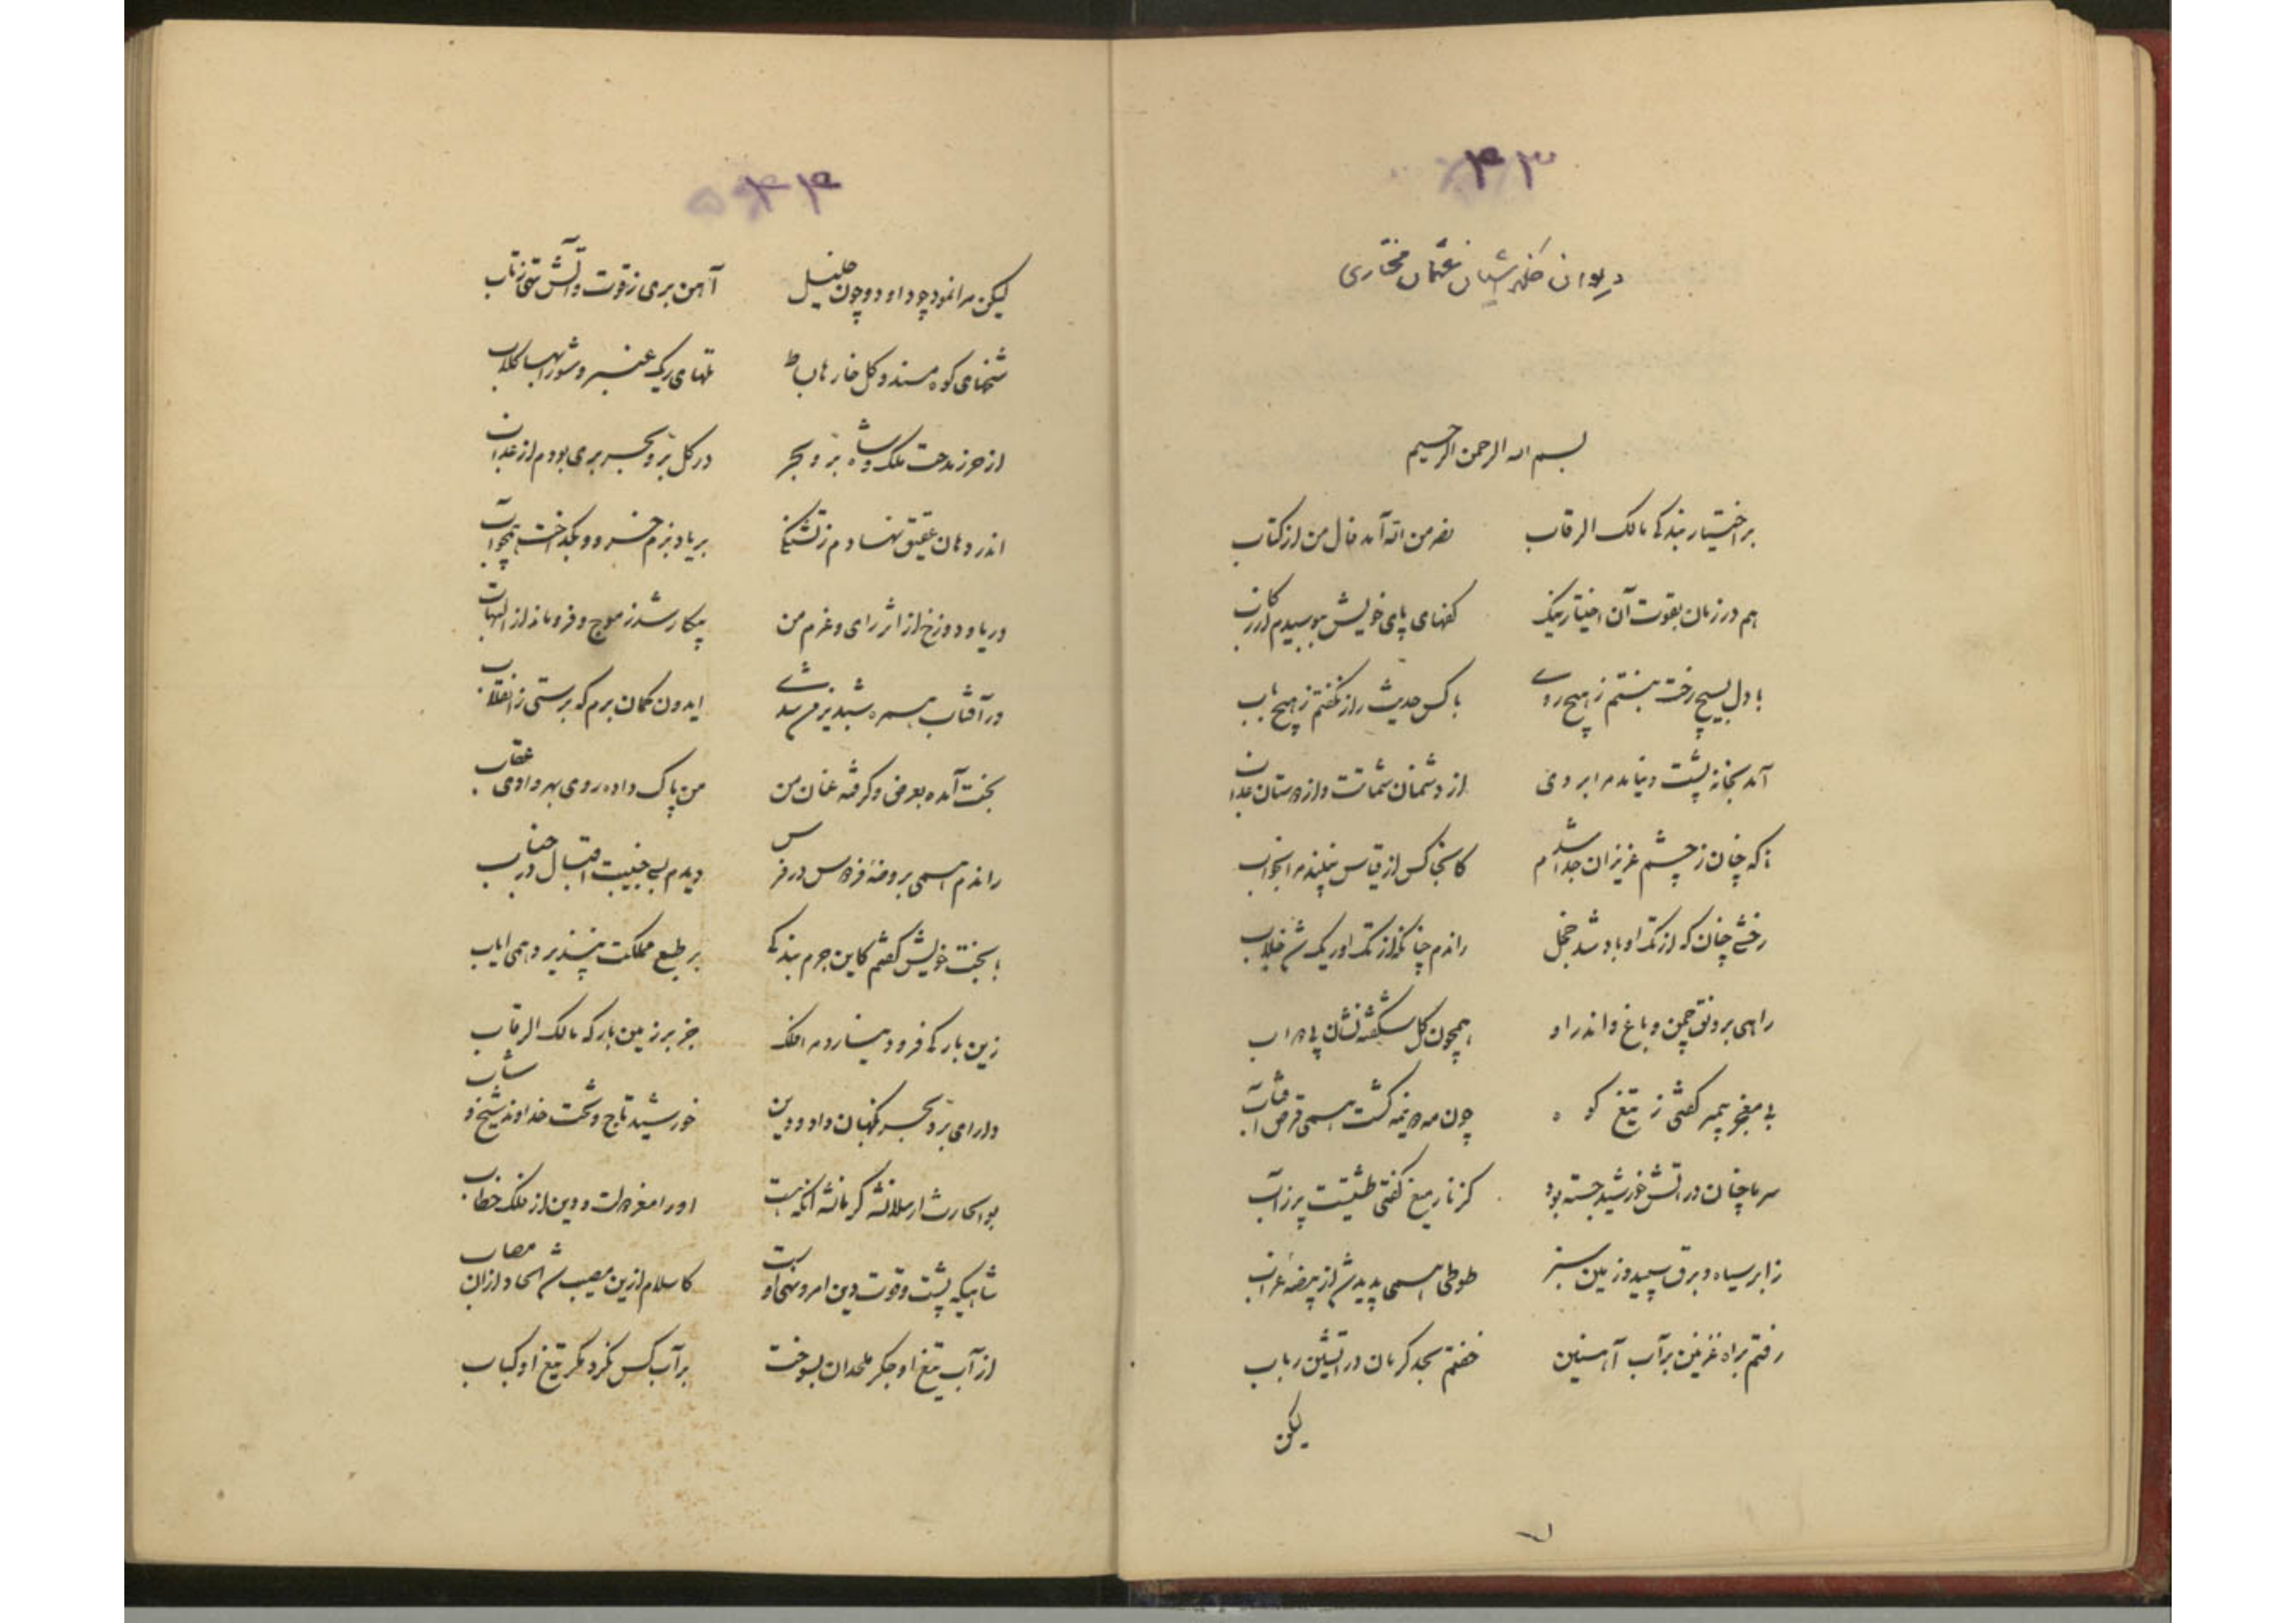 ۴۳
دیوان خلد آشیان عثمان مختاری
بسم الله الرحمن الرحیم
بر اختیار بندگی مالک الرقاب نصر من الله آمد فال من از کتاب
هم در زمان بقوت آن اختیار نیک کفهای پای خویش ببوسیدم از رکاب
با دل بسیچ رخت ببستم ز هیچ روی با کس حدیث راز نگفتم ز هیچ باب
آمد بخانه پشت و نیامد مرا بروی از دشمنان شماتت و از دوستان عتاب
زانکه چنان ز چشم عزیزان جدا شدم کانجا کس از قیاس نبیند مرا بخواب
رخشی چنان که از تک او باد شد خجل راندم چنانکه از تک او ریک شد خلاب
راهی برونق چمن و باغ و اندر او همچون گل شکفته نشان پی دواب
بی مغفر و سپر گفتی ز تیغ کوه چون مه دو نیمه گشت همی قرص آفتاب
سرما چنان در آتش خورشید جسته بود کز نار میغ گفتی طشتیست پر ز آب
ز ابر سیاه و برق سپید و زمین سبز طوطی همی پدید شد از بیضه غراب
رفتم براه غزنین بر آب آهنین خفتم بحد کرمان در آتشین رباب
لیکن
۴۴
لیکن مرا نمود چو داود و چون خلیل آهن بری ز قوت و آتش تهی ز تاب
شخهای کوه مسند و گل خارها بساط تلهای ریک عنبر و شورابها گلاب
از حرز مدحت ملک و شاه بر و بحر در کل بر و بحر بری بودم از عذاب
اندر دهان عقیق نهادم ز تشنگی بر یاد بزم خسرو و بگداخت همچو آب
دریا و دوزخ از اثر رای و عزم من بیکار شد ز موج و فرو ماند از التهاب
در آفتاب بهره شبدیز من شدی ایدون گمان برم که برستی ز انقلاب
بخت آمده بعرض و گرفته عنان من من پاک داده روی بهر وادی عقاب
راندم همی بروضه فردوس در فرس دیدم بسی جنیبت اقبال در جناب
با بخت خویش گفتم کاین جرم بندگی بر طبع مملکت نپذیرد همی ایاب
زین بارگی فرود نیارد مرا فلک جز بر زمین بارگه مالک الرقاب
دارای بر و بحر نگهبان داد و دین خورشید تاج و تخت خداوند شیخ و شاب
بو الحارث ارسلانشه کرمانشه آنکه هست او را معز دولت و دین از فلک خطاب
شاهیکه پشت و قوت دین امر و نهی اوست کاسلام ازین مصیب شد الحاد از آن مصاب
از آب تیغ او جگر ملحدان بسوخت بر آب کس نکرد مگر تیغ او کباب